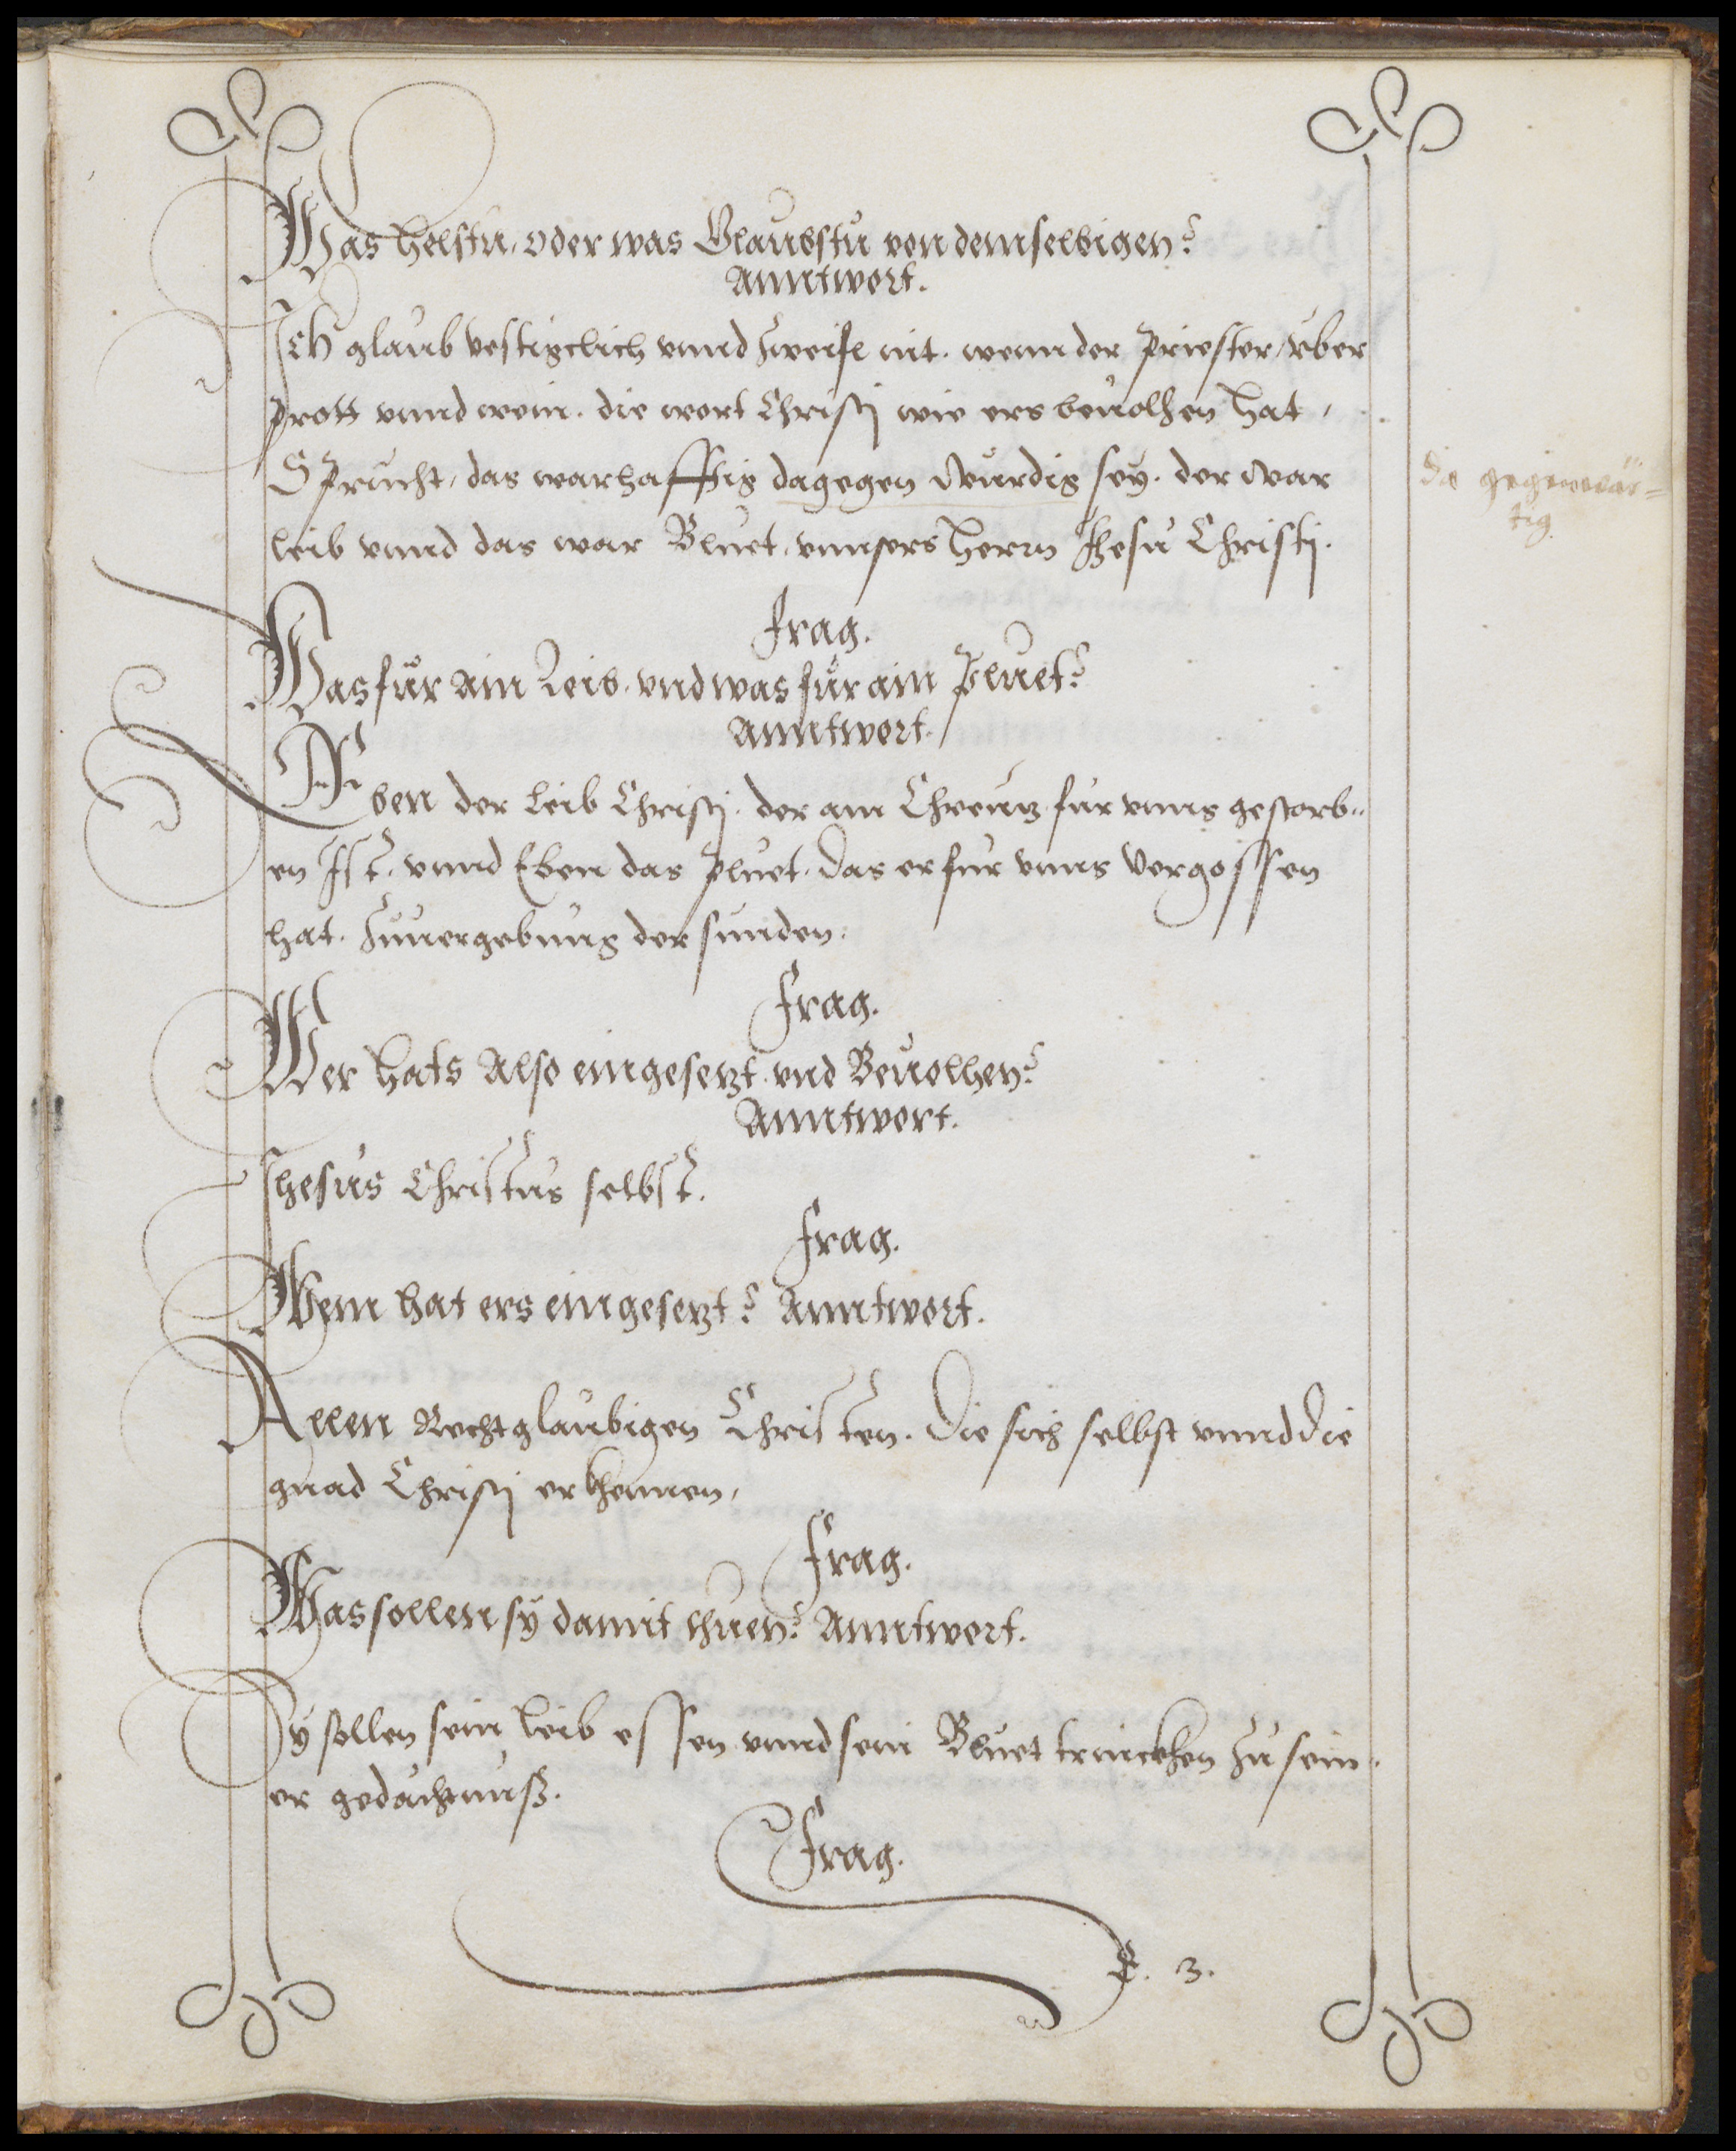 Was helstu, oder was Glaubstu von demselbigen?
Anntwort.
Ich glaub vestigclich vnnd zweifl nit. wenn der Priester, vber
Prott vnnd wein. die wort Christj wie ers beuolhen hat,
Spricht, das warhafftig dagegen wurdig sey. der war
leib vnnd das war Bluet, vnnsers herrn Jhesu Christj.
da gegenwär=
tig
Frag.
Was für ain Leib. vnd was für ain Pluet?
Anntwort.
Eben der leib Christj. der am Chreutz für vnns gestorb=
en Ist. vnnd Eben das Pluet. das er für vnns Vergossen
hat. Zuuergebung der sunden.
Frag.
Wer hats Also eingesetzt. vnd Beuolhen?
Anntwort.
Jhesus Christus selbst.
Frag.
Wem hat ers eingesetzt? Anntwort.
Allen Rechtglaubigen Christen. Die sich selbst vnnd die
gnad Christj erkhennen,
Frag.
Was sollen sy damit thuen? Anntwort.
Sy sollen sein Leib essen vnnd sein Bluet trinckhen zu sein=
er gedächtnuß.
Frag.
E. 3.